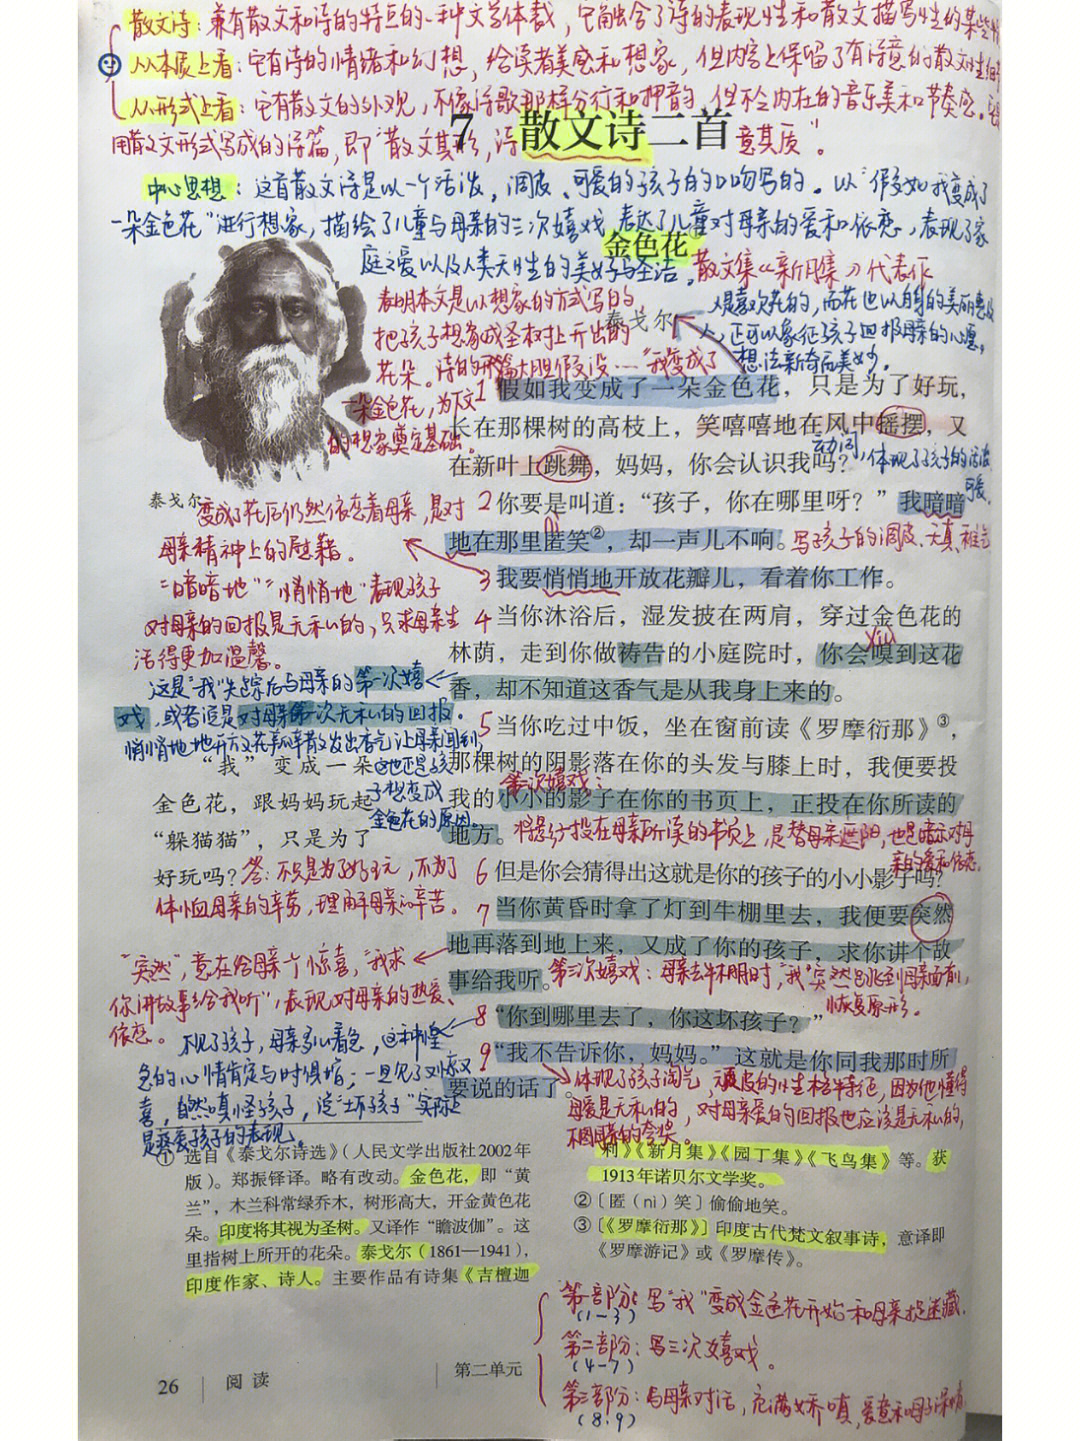 散文诗：兼有散文和诗的特点的一种文学体裁，它融合了诗的表现性和散文描写性的某些特
从本质上看：它有诗的情绪和幻想，给读者美感和想象，但内容上保留了有诗意的散文性细节
从形式上看：它有散文的外观，不像诗歌那样分行和押韵，但不乏内在的音乐美和节奏感。
用散文形式写成的诗篇，即“散文其形，诗意其质”。
7 散文诗二首
中心思想：这首散文诗是以一个活泼，调皮、可爱的孩子的口吻写的。以“假如我变成了
一朵金色花”进行想象，描绘了儿童与母亲的三次嬉戏，表达了儿童对母亲的爱和依恋，表现了家
庭之爱以及人类天性的美好与圣洁。
金色花
散文集《新月集》代表作
泰戈尔
表明本文是以想象的方式写的，
把孩子想象成圣树上开出的
花朵。诗的开篇大胆假设……“我变成了
一朵金色花，为下文
的想象奠定基础。
人是喜欢花的，而花也以自身的美丽惠及
人，正可以象征孩子回报母亲的心愿，
想法新奇而美妙。
1 假如我变成了一朵金色花，只是为了好玩，
长在那棵树的高枝上，笑嘻嘻地在风中摇摆，又
在新叶上跳舞，妈妈，你会认识我吗？
动词，体现了孩子的活泼
可爱。
泰戈尔
2 你要是叫道：“孩子，你在哪里呀？”我暗暗
地在那里匿笑②，却一声儿不响。
nì
写孩子的调皮、天真、稚气
3 我要悄悄地开放花瓣儿，看着你工作。
变成了花后仍然依恋着母亲，是对
母亲精神上的慰藉。
“暗暗地”“悄悄地”表现孩子
对母亲的回报是无私的，只求母亲生
活得更加温馨。
4 当你沐浴后，湿发披在两肩，穿过金色花的
林荫，走到你做祷告的小庭院时，你会嗅到这花
香，却不知道这香气是从我身上来的。
xiù
这是“我”失踪后与母亲的第一次嬉
戏，或者说是对母亲第一次无私的回报。
悄悄地地开放花瓣散发出香气让母亲闻到，
这也是孩
子想变成
金色花的原因。
5 当你吃过中饭，坐在窗前读《罗摩衍那》③，
那棵树的阴影落在你的头发与膝上时，我便要投
我的小小的影子在你的书页上，正投在你所读的
地方。
第二次嬉戏：
将影子投在母亲所读的书页上，是替母亲遮阳，也是暗示对母
亲的爱和依恋。
“我”变成一朵
金色花，跟妈妈玩起
“躲猫猫”，只是为了
好玩吗？
答：不只是为了好玩，不为了
体恤母亲的辛劳，理解母亲的辛苦。
6 但是你会猜得出这就是你的孩子的小小影子吗？
7 当你黄昏时拿了灯到牛棚里去，我便要突然
地再落到地上来，又成了你的孩子，求你讲个故
事给我听。
第三次嬉戏：母亲去牛棚时，“我”突然跳到母亲面前，
恢复原形。
“突然”，意在给母亲一个惊喜，“我求
你讲故事给我听”，表现对母亲的热爱、
依恋。
8 “你到哪里去了，你这坏孩子？”
9 “我不告诉你，妈妈。”这就是你同我那时所
要说的话了。
不见了孩子，母亲多么着急，这种惶
急的心情肯定与时俱增；一旦见了又惊又
喜，自然嗔怪孩子，说“坏孩子”实际上
是疼爱孩子的表现。
体现了孩子淘气，顽皮的性格特征，因为他懂得
母爱是无私的，对母亲爱的回报也应该是无私的，
不图母亲的夸奖。
① 选自《泰戈尔诗选》（人民文学出版社2002年
版）。郑振铎译。略有改动。金色花，即“黄
兰”，木兰科常绿乔木，树形高大，开金黄色花
朵。印度将其视为圣树。又译作“瞻波伽”。这
里指树上所开的花朵。泰戈尔（1861—1941），
印度作家、诗人。主要作品有诗集《吉檀迦
利》《新月集》《园丁集》《飞鸟集》等。获
1913年诺贝尔文学奖。
②〔匿（nì）笑〕偷偷地笑。
③〔《罗摩衍那》〕印度古代梵文叙事诗，意译即
《罗摩游记》或《罗摩传》。
第一部分：写“我”变成金色花开始和母亲捉迷藏。
（1-3）
第二部分：写三次嬉戏。
（4-7）
第三部分：与母亲对话，充满娇嗔，爱意和
（8.9）
26 阅读
第二单元